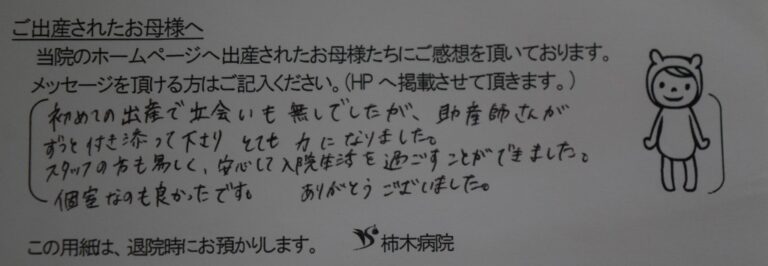 ご出産されたお母様へ
当院のホームページへ出産されたお母様たちにご感想を頂いております。
メッセージを頂ける方はご記入ください。(HPへ掲載させて頂きます。)
初めての出産で立会いも無しでしたが、助産師さんが
ずっと付き添って下さり とても力になりました。
スタッフの方も易しく、安心して入院生活を過ごすことができました。
個室なのも良かったです。 ありがとうございました。
この用紙は、退院時にお預かりします。 柿木病院